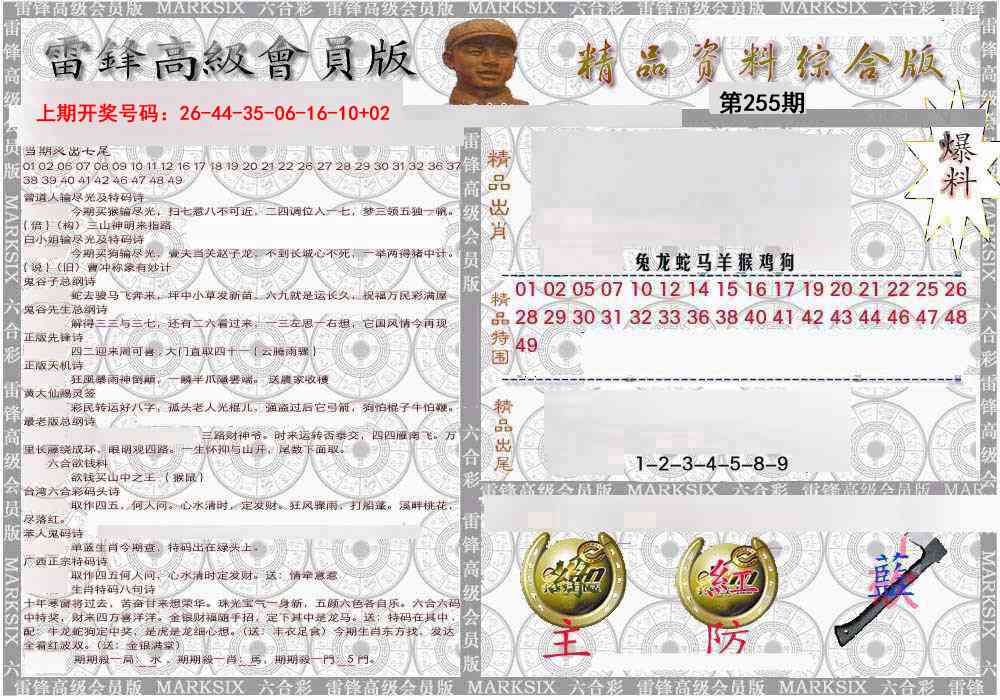 雷锋高级会员版 MARKSIX 六合彩 雷锋高级会员版 MARKSIX 六合彩 雷锋高级会员版 MARKSIX 六合彩 雷锋
雷鋒高級會員版
精品资料综合版
第255期
上期开奖号码：26-44-35-06-16-10+02
爆料
当期奖出七尾
01 02 06 07 08 09 10 11 12 16 17 18 19 20 21 22 26 27 28 29 30 31 32 36 37
38 39 40 41 42 46 47 48 49
曾道人输尽光及特码诗
今期买猴输尽光，扫七惹八不可近，二四调位入一七，梦三领五独一帆。
{倍}（构）三山神明来指路
白小姐输尽光及特码诗
今期买狗输尽光，壹夫当关赵子龙，不到长城心不死，一举两得猪中计。
{说}（旧）曹冲称象有妙计
鬼谷子总纲诗
蛇去骏马飞奔来，坪中小草发新苗，六九就是运长久，祝福万民彩满屋
鬼谷先生总纲诗
解得三三与三七，还有二六看过来，一三左思一右想，它国风情今再现
正版先锋诗
四二迎来周可喜，大门直取四十一｛云腾雨骤｝
正版天机诗
狂風暴雨神倒顛，一鳞半爪隱雲端。 送農家收穫
黄大仙赐灵签
彩民转运好八字，孤头老人光棍儿，强盗过后它弓箭，狗怕棍子牛怕鞭。
最老版总纲诗
三路财神爷。时来运转否泰交，四四雁南飞。万
里长藤绕成环。眼明观四路。一生怀抑与山开，尾数下面取。
六合欲钱料
欲钱买山中之王 ｛猴鼠｝
台湾六合彩码头诗
取作四五，何人问。心水清时，定发财。狂风骤雨，打船蓬。溪畔桃花，
尽落红。
苯人鬼码诗
单蓝生肖今期查，特码出在绿头上。
广西正宗特码诗
取作四五何人问，心水清时定发财。送：情牵意惹
生肖特码八句诗
十年寒窗将过去，苦奋甘来想荣华。珠光宝气一身新，五颜六色各自乐。六合六码
中特奖，财来四方喜洋洋。金银财福随手招，定下其中是龙马。送：特码在其中，
配：牛龙蛇狗定中奖，是虎是龙细心想。（送：丰衣足食）今期生肖东方找，发达
全看红波双。（送：金银满堂）
期期殺一局：水 。期期殺一肖：馬，期期殺一門：5門。
精品出肖
兔龙蛇马羊猴鸡狗
精品特围
01 02 05 07 10 12 14 15 16 17 19 20 21 22 25 26
28 29 30 31 32 33 36 38 40 41 42 43 44 46 47 48
49
精品出尾
1-2-3-4-5-8-9
雷锋高级会员版 MARKSIX 六合彩 雷锋高级会员版 MARKSIX
主
紅
防
藍
雷锋高级会员版 MARKSIX 六合彩 雷锋高级会员版 MARKSIX 六合彩 雷锋高级会员版 MARKSIX 六合彩 雷锋